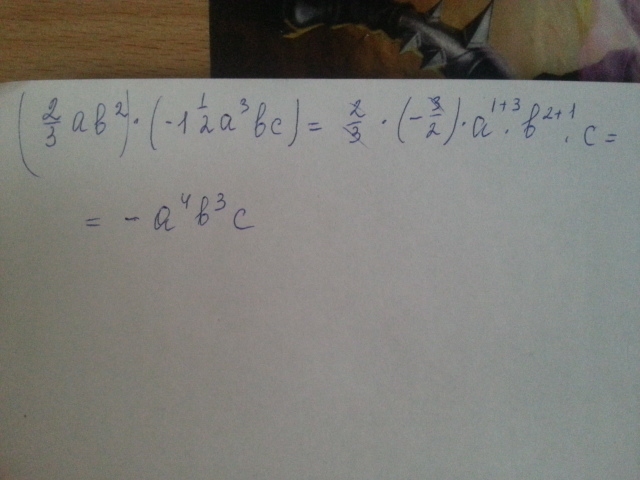 (2/3 ab²)·(-1 1/2 a³bc) = 2/3 · (-3/2)·a¹⁺³·b²⁺¹·c =
= - a⁴b³c